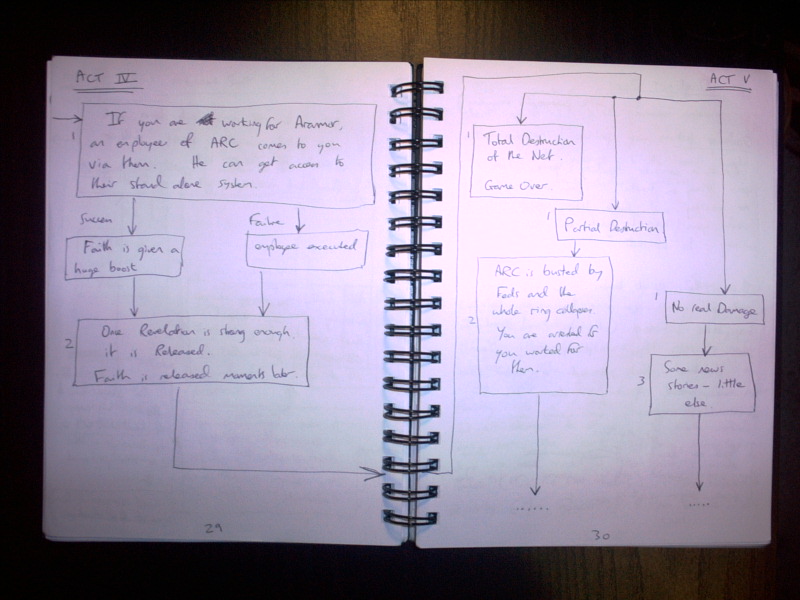 ACT IV
1
If you are working for Aranmor,
an employee of ARC comes to you
via them. He can get access to
their stand alone system.
Success
Failure
Faith is given a
huge boost
employee executed
2
One Revelation is strong enough
it is Released.
Faith is released moments later.
29
ACT V
1
Total Destruction
of the Net.
Game Over.
1
Partial Destruction
2
ARC is busted by
Feds and the
whole ring collapses.
You are arrested if
you worked for
them.
......
1
No real Damage
3
Some news
stories - little
else
.....
30